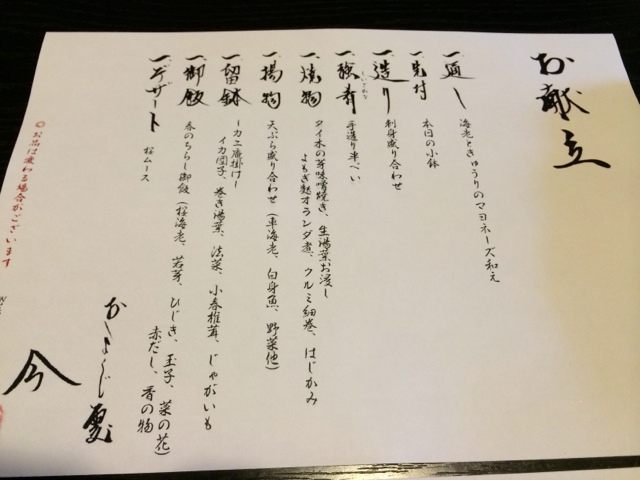 お献立
一、通し
海老ときゅうりのマヨネーズ和え
一、先付
本日の小鉢
一、造り
刺身盛り合わせ
一、強肴
手造り半ぺい
一、焼物
タイ木の芽味噌焼き、生湯葉お浸し
よもぎ麩オランダ煮、クルミ細巻、はじかみ
一、揚物
天ぷら盛り合わせ(車海老、白身魚、野菜他)
一、留鉢
ーカニ庵掛けー
イカ団子、巻き湯葉、法菜、小春椎茸、じゃがいも
一、御飯
春のちらし御飯(桜海老、若芽、ひじき、玉子、菜の花)
赤だし、香の物
一、デザート
桜ムース
◎お品は変わる場合がございます
今